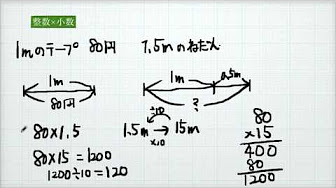 整数×小数
1mのテープ 80円 1.5mのねだん
1m 1m 0.5m
80円 ?
80×1.5
80×15=1200
1200÷10=120
÷10
1.5m→15m
×10
80
×15
400
80
1200